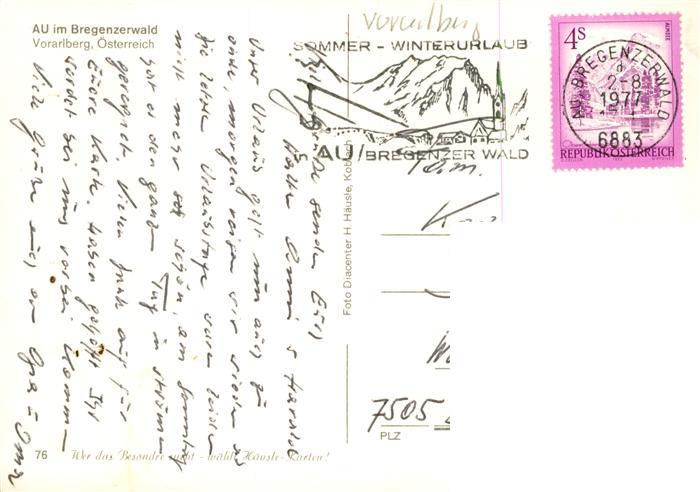 AU im Bregenzerwald
Vorarlberg, Österreich
Vorarlberg
SOMMER - WINTERURLAUB
AU/BREGENZER WALD
4S
ALMSEE
AU, BREGENZERWALD
a
2-8
1977
6883
REPUBLIK ÖSTERREICH
Grüße senden Euch
Unser Urlaub geht nun auch zu
ende morgen reisen wir wieder ab
die letzten Urlaubstage waren leider
nicht mehr so schön, am Sonntag
hat es den ganzen Tag in strömen
geregnet. Vielen Dank auch für
Eure Karte. Haben gehofft Ihr
bei uns vorbei kommen
Viele Grüße auch an Opa u Oma
Fam.
7505
PLZ
Foto Diacenter H. Häusle, Koblach
76
Wer das Besondre sucht - wählt Häusle-Karten!